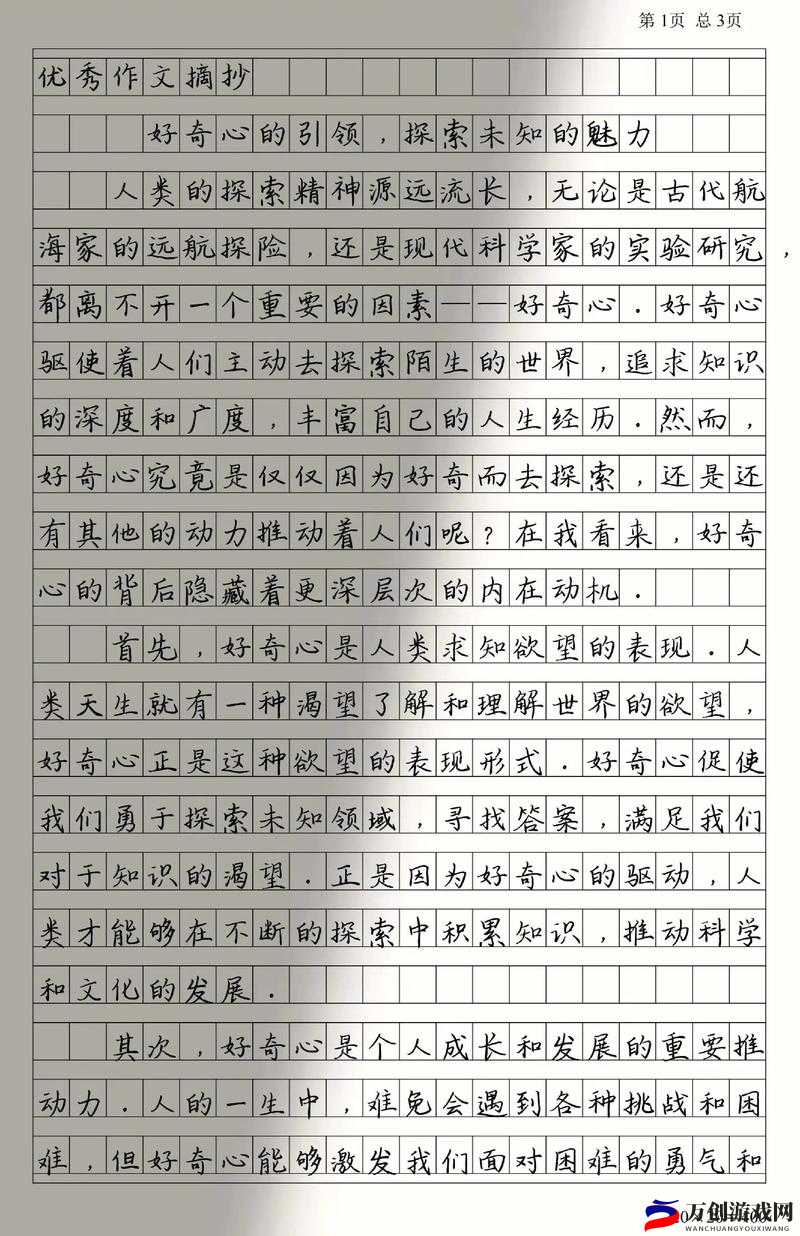 第 1页 总 3页
优秀作文摘抄
好奇心的引领，探索未知的魅力
人类的探索精神源远流长，无论是古代航
海家的远航探险，还是现代科学家的实验研究，
都离不开一个重要的因素——好奇心．好奇心
驱使着人们主动去探索陌生的世界，追求知识
的深度和广度，丰富自己的人生经历．然而，
好奇心究竟是仅仅因为好奇而去探索，还是还
有其他的动力推动着人们呢？在我看来，好奇
心的背后隐藏着更深层次的内在动机．
首先，好奇心是人类求知欲望的表现．人
类天生就有一种渴望了解和理解世界的欲望，
好奇心正是这种欲望的表现形式．好奇心促使
我们勇于探索未知领域，寻找答案，满足我们
对于知识的渴望．正是因为好奇心的驱动，人
类才能够在不断的探索中积累知识，推动科学
和文化的发展．
其次，好奇心是个人成长和发展的重要推
动力．人的一生中，难免会遇到各种挑战和困
难，但好奇心能够激发我们面对困难的勇气和
万创游戏网
WANCHUANGYOUXIWANG